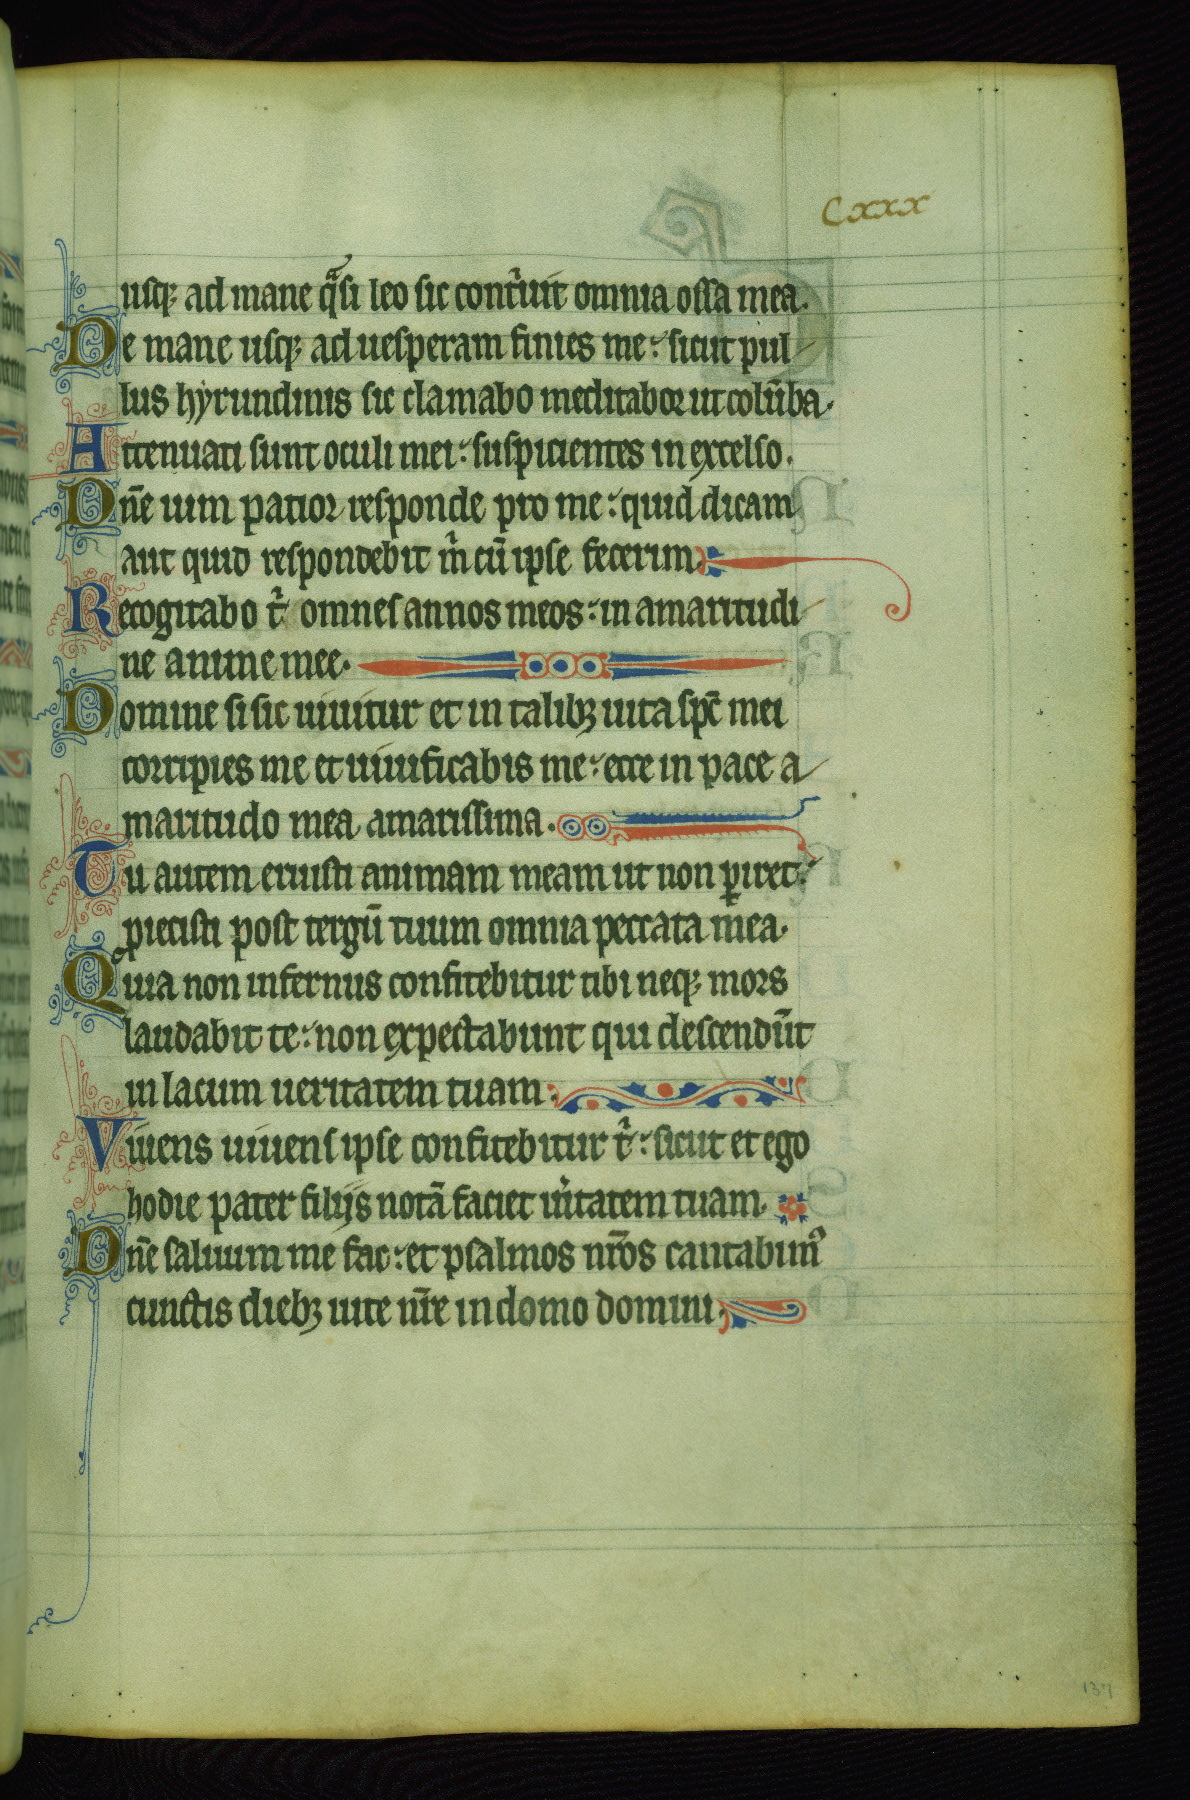 Cxxx
usq; ad mane q̃si leo sic cont̉uit omnia ossa mea.
De mane usq; ad uesperam finies me: sicut pul
lus hyrundinis sic clamabo meditabor ut colũba.
Attenuati sunt oculi mei: suspicientes in excelso.
Dñe uim patior responde pro me: quid dicam
aut quid respondebit m̉ cũ ipse fecerim.
Recogitabo t̉ omnes annos meos: in amaritudi
ne anime mee.
Domine si sic uiuitur et in talibꝫ uita sp̄c mei
corripies me et uiuificabis me: ecce in pace a
maritudo mea amarissima.
Tu autem eruisti animam meam ut non ꝑiret:
ꝓiecisti post tergũ tuum omnia peccata mea.
Quia non infernus confitebitur tibi neq; mors
laudabit te: non expectabunt qui descendũt
in lacum ueritatem tuam.
Viuens uiuens ipse confitebitur t̉: sicut et ego
hodie pater filijs notã faciet ũitatem tuam.
Dñe saluum me fac: et psalmos nr̃os cantabimꝰ
cunctis diebꝫ uite nr̃e in domo domini.
137